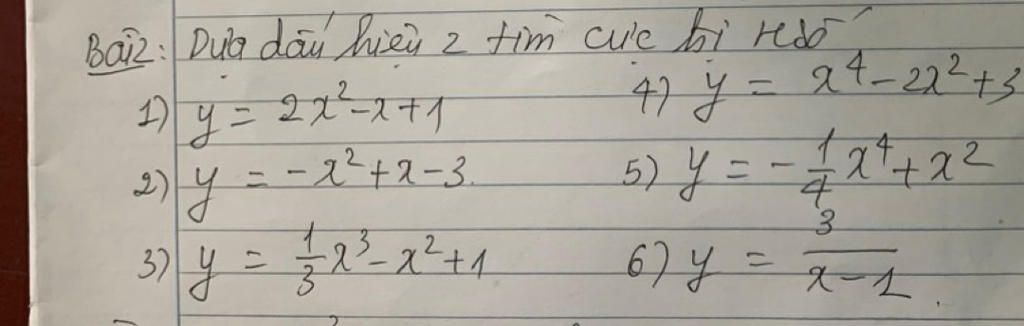 Bài 2: Dựa dấu hiệu 2 tìm cực trị
1) y = 2x² - x + 1
4) y = x⁴ - 2x² + 3
2) y = -x² + x - 3.
5) y = -1/4 x⁴ + x²
3) y = 1/3 x³ - x² + 1
6) y = 3/(x - 1).